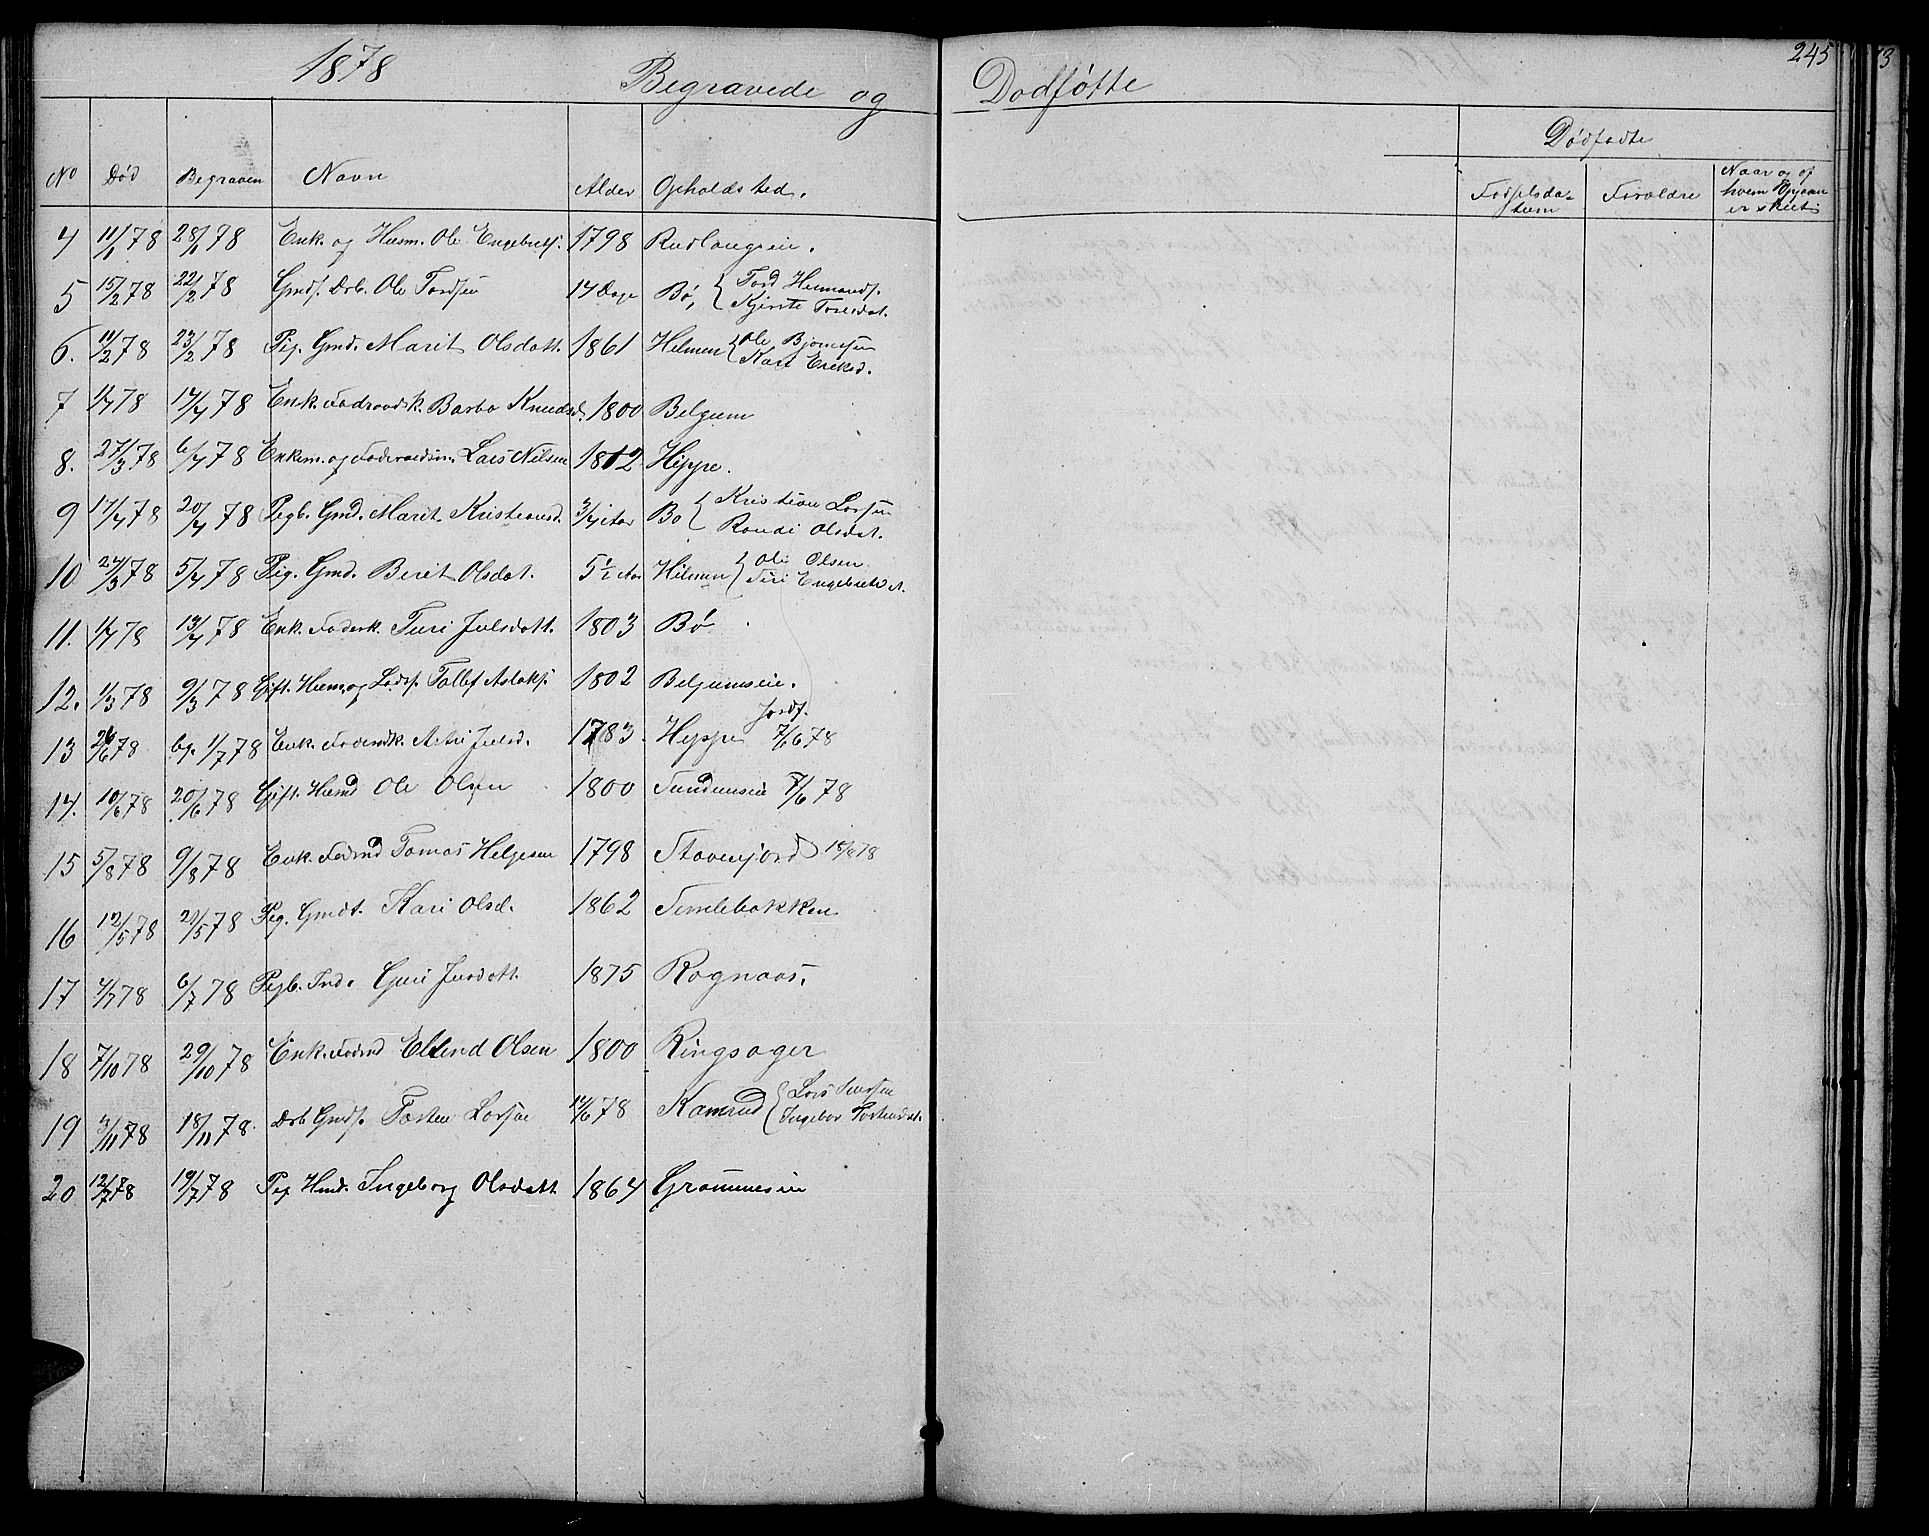 1878 Begravede og Dødføtte 245
Dødfødte
No Død Begraven Navn Alder Opholdssted. Fødselsda- Forældre Naar og af
tum hvem
er skeet
4 11/1 78 28/1 78 Enk. og Husm. Ole Engebretsf. 1798 Rudlangseie.
5 15/2 78 22/2 78 Gmdf. Drb. Ole Tordsen 14 Dage Bø, { Tord
Kjersti Toresdat.
6. 11/2 78 23/2 78 Pig. Gmd. Marit Olsdatt. 1861 Helmen { Ole Bjørnsen
Kari Eriksd.
7 1/4 78 14/4 78 Enk. Barbo Knudsd. 1800 Belgum
8. 27/3 78 6/4 78 Enkem. og Lars Nilsen 1812 Hippe.
9 14/4 78 20/4 78 Pigb. Gmd. Marit Kristiansd. 3/4 Aar Bø { Kristian Larsen
Randi Olsdat.
10 24/3 78 5/4 78 Pig. Gmd. Berit Olsdat. 5 1/2 Aar Hilmen { Ole Olsen
Siri Engebretsd.
11. 1/4 78 13/4 78 Enk. Foderk. Turi Julsdatt. 1803 Bø
12. 1/3 78 9/3 78 Gift. Husm. og Tollef Aslaksf. 1802 Belgumseie.
Jordf.
13 26/6 78 bg. 1/7 78 Enk. Astri Julsd. 1783 Hippe 7/6 78
14. 10/6 78 20/6 78 Gift. Husmd Ole Olsen 1800 7/6 78
15 5/8 78 9/8 78 Enk. Fodmd Tomas Helgesen 1798 Stavenjord 18/8 78
16 12/5 78 21/5 78 Pig. Gmdt. Kari Olsd. 1862
17 4/7 78 6/7 78 Pigb. Ind. Guri Julsdatt. 1875 Rognaas.
18 7/10 78 29/10 78 Enk. Fodmd Ellend Olsen 1800 Ringsager
19 3/11 78 18/11 78. Drb. Gmdf. Tosten Larsen 14/6 78 Kamrud { Lars
Ingebor Tostensdat.
20 12/7 78 19/7 78 Pig Husmd. Ingeborg Olsdatt. 1864